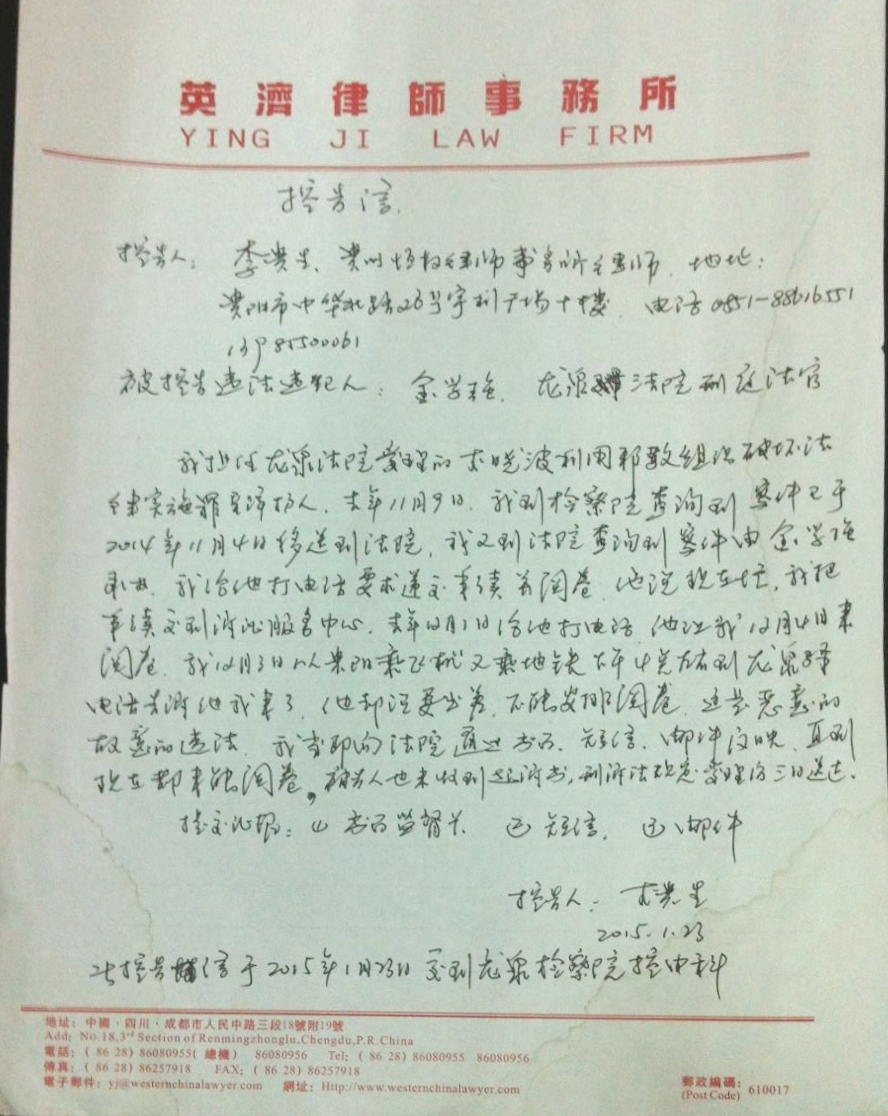 英濟律師事務所
YING JI LAW FIRM
控告信
控告人：李贵生、贵州 律师事务所律师 地址：
贵阳市中华北路26号宇利广场十楼 电话0851-88616551
被控告违法违纪人：金学 、龙泉 法院刑庭法官
我担任龙泉法院受理的 晓波利用邪教组织破坏法
律实施罪 辩护人，去年11月9日，我到检察院查询到案件已于
2014年11月4日移送到法院，我又到法院查询到案件由金学
承办 我给他打电话要求递交手续并阅卷 他说现在忙，我把
手续交到诉讼服务中心，去年12月1日给他打电话 他让我12月4日来
阅卷，我12月3日从贵阳乘飞机又乘地铁下午4点左右到龙泉驿
电话告诉他我来了，他却说要出差，不能安排阅卷，这是恶意的
故意的违法，我当即向法院通过书面、短信、邮件反映，直到
现在都未能阅卷，被告人也未收到起诉书，刑诉法规定受理后三日送达。
提交证据：(1) 书面监督 (2) 短信， (3) 邮件
控告人：李贵生
2015.1.23
此控告信于2015年1月23日交到龙泉检察院控申科
地址：中國·四川·成都市人民中路三段18號附19號
Add: No.18,3rd Section of Renmingzhonglu,Chengdu,P.R.China
電話：( 86 28) 86080955( 總機) 86080956 Tel: ( 86 28) 86080955 86080956
傳真：( 86 28) 86257918 FAX: ( 86 28) 86257918
電子郵件：yj@westernchinalawyer.com 網址：Http://www.westernchinalawyer.com
郵政編碼：
(Post Code) 610017